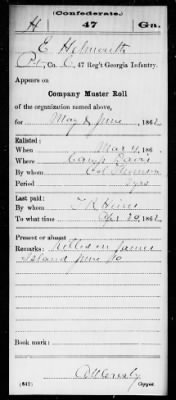 (Confederate.)
H 47 Ga.
E Helmuth
Pt., Co. C, 47 Reg't Georgia Infantry.
Appears on
Company Muster Roll
of the organization named above,
for May & June, 1862
Enlisted:
When Mar 4, 186
Where Camp Davis
By whom Col
Period 3 yrs
Last paid:
By whom
To what time Apr 30, 1862
Present or absent
Remarks: Killed on James
Island June 10
Book mark:
(642) Copyist.